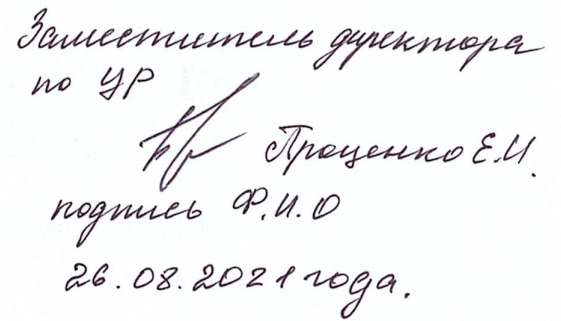 Заместитель директора
по УР
Проценко Е.И.
подпись Ф.И.О
26.08.2021 года.